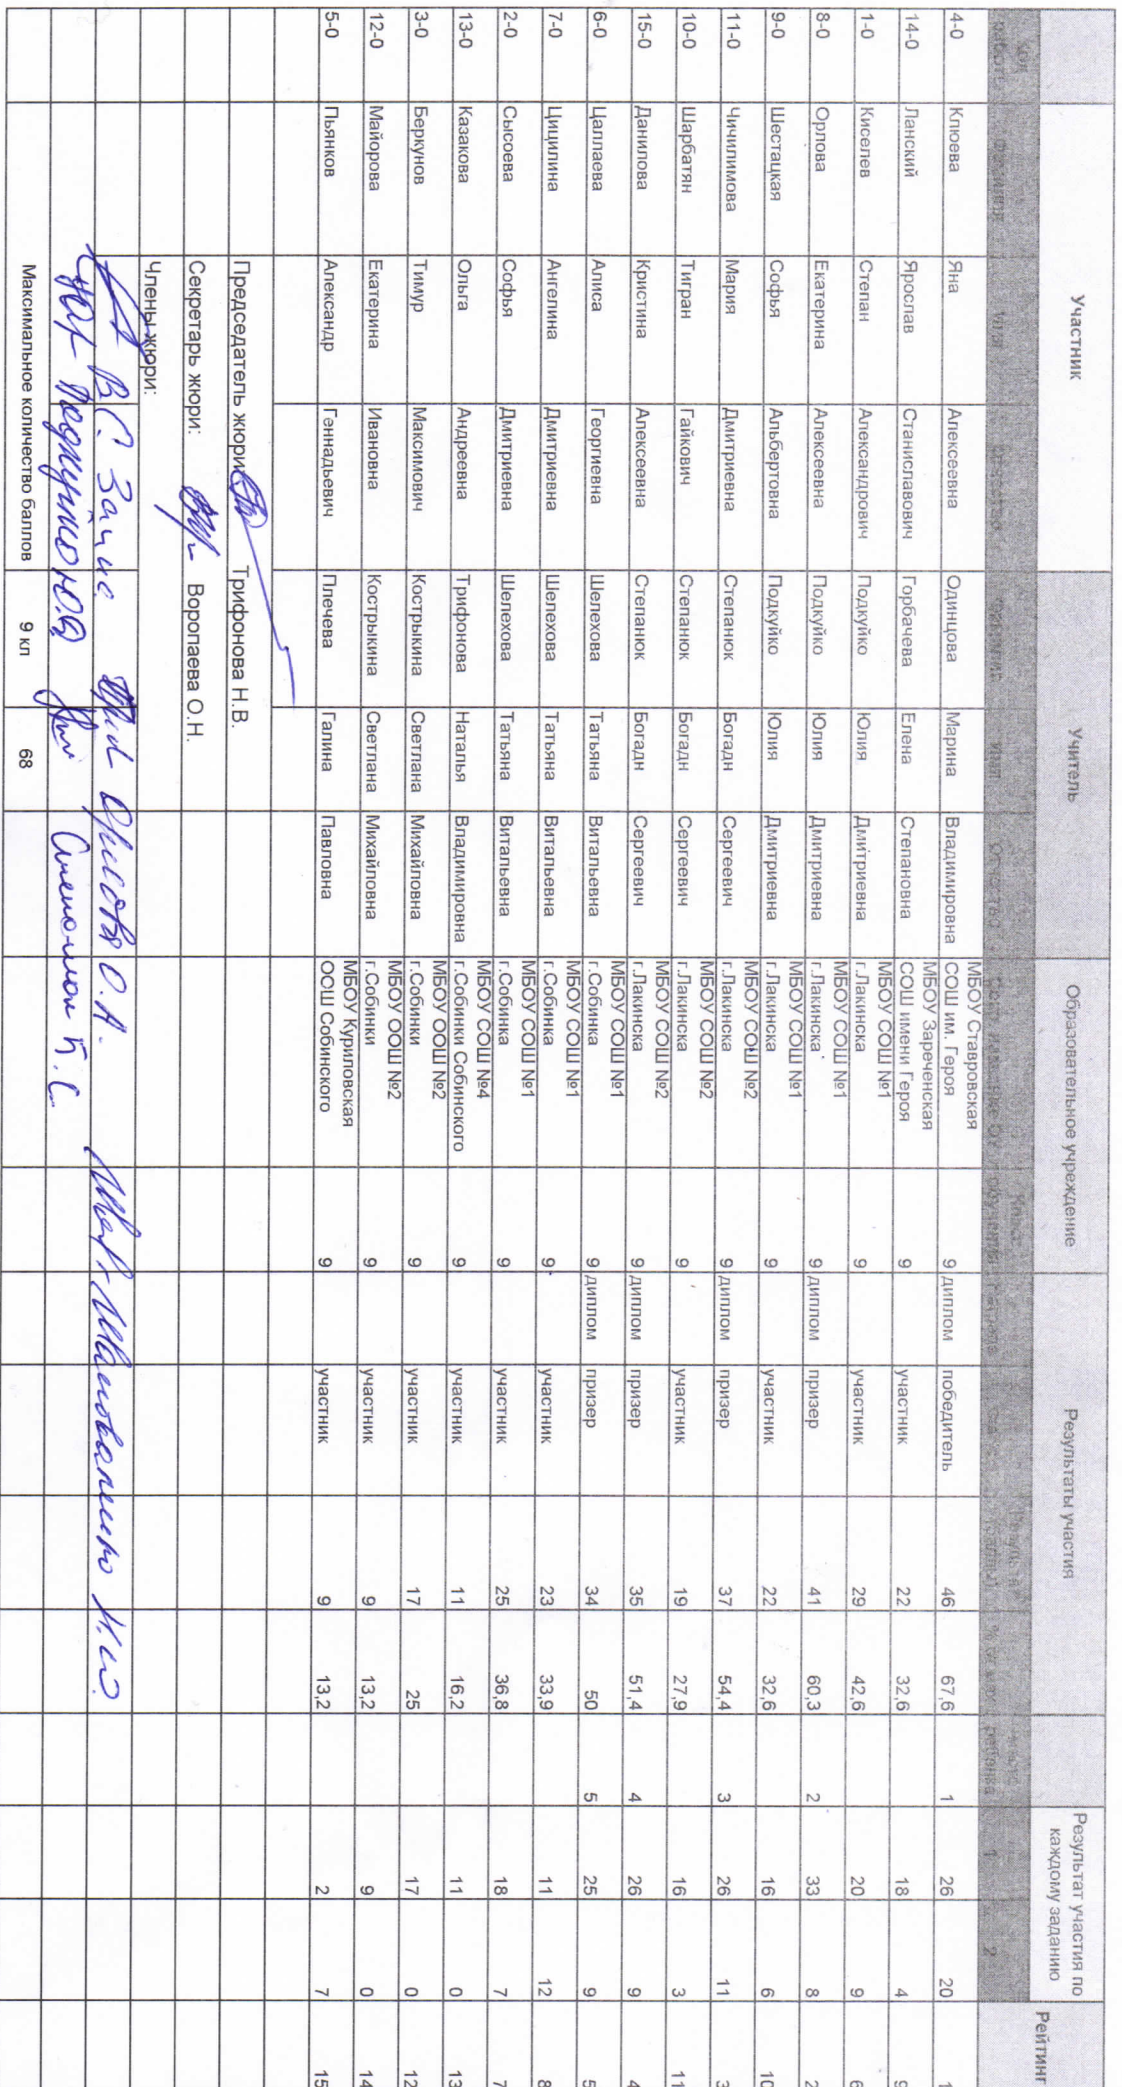 Участник Учитель Образовательное учреждение Результаты участия Результат участия по каждому заданию Рейтинг
работы фамилия имя отчество фамилия имя отчество 1 2
4-0 Клюева Яна Алексеевна Одинцова Марина Владимировна МБОУ Ставровская СОШ им. Героя 9 диплом победитель 46 67,6 1 26 20 1
14-0 Ланский Ярослав Станиславович Горбачева Елена Степановна МБОУ Зареченская СОШ имени Героя 9 участник 22 32,6 18 4 9
1-0 Киселев Степан Александрович Подкуйко Юлия Дмитриевна МБОУ СОШ №1 г.Лакинска 9 участник 29 42,6 20 9 6
8-0 Орлова Екатерина Алексеевна Подкуйко Юлия Дмитриевна МБОУ СОШ №1 г.Лакинска 9 диплом призер 41 60,3 2 33 8 2
9-0 Шестацкая Софья Альбертовна Подкуйко Юлия Дмитриевна МБОУ СОШ №1 г.Лакинска 9 участник 22 32,6 16 6 10
11-0 Чичилимова Мария Дмитриевна Степанюк Богадн Сергеевич МБОУ СОШ №2 г.Лакинска 9 диплом призер 37 54,4 3 26 11 3
10-0 Шарбатян Тигран Гайкович Степанюк Богадн Сергеевич МБОУ СОШ №2 г.Лакинска 9 участник 19 27,9 16 3 11
15-0 Данилова Кристина Алексеевна Степанюк Богадн Сергеевич МБОУ СОШ №2 г.Лакинска 9 диплом призер 35 51,4 4 26 9 4
6-0 Цаллаева Алиса Георгиевна Шелехова Татьяна Витальевна МБОУ СОШ №1 г.Собинка 9 диплом призер 34 50 5 25 9 5
7-0 Цицилина Ангелина Дмитриевна Шелехова Татьяна Витальевна МБОУ СОШ №1 г.Собинка 9 участник 23 33,9 11 12 8
2-0 Сысоева Софья Дмитриевна Шелехова Татьяна Витальевна МБОУ СОШ №1 г.Собинка 9 участник 25 36,8 18 7 7
13-0 Казакова Ольга Андреевна Трифонова Наталья Владимировна МБОУ СОШ №4 г.Собинки Собинского 9 участник 11 16,2 11 0 13
3-0 Беркунов Тимур Максимович Кострыкина Светлана Михайловна МБОУ ООШ №2 г.Собинки 9 участник 17 25 17 0 12
12-0 Майорова Екатерина Ивановна Кострыкина Светлана Михайловна МБОУ ООШ №2 г.Собинки 9 участник 9 13,2 9 0 14
5-0 Пьянков Александр Геннадьевич Плечева Галина Павловна МБОУ Куриловская ООШ Собинского 9 участник 9 13,2 2 7 15
Председатель жюри Трифонова Н.В.
Секретарь жюри: Воропаева О.Н.
Члены жюри:
О.А.
Максимальное количество баллов 9 кл 68